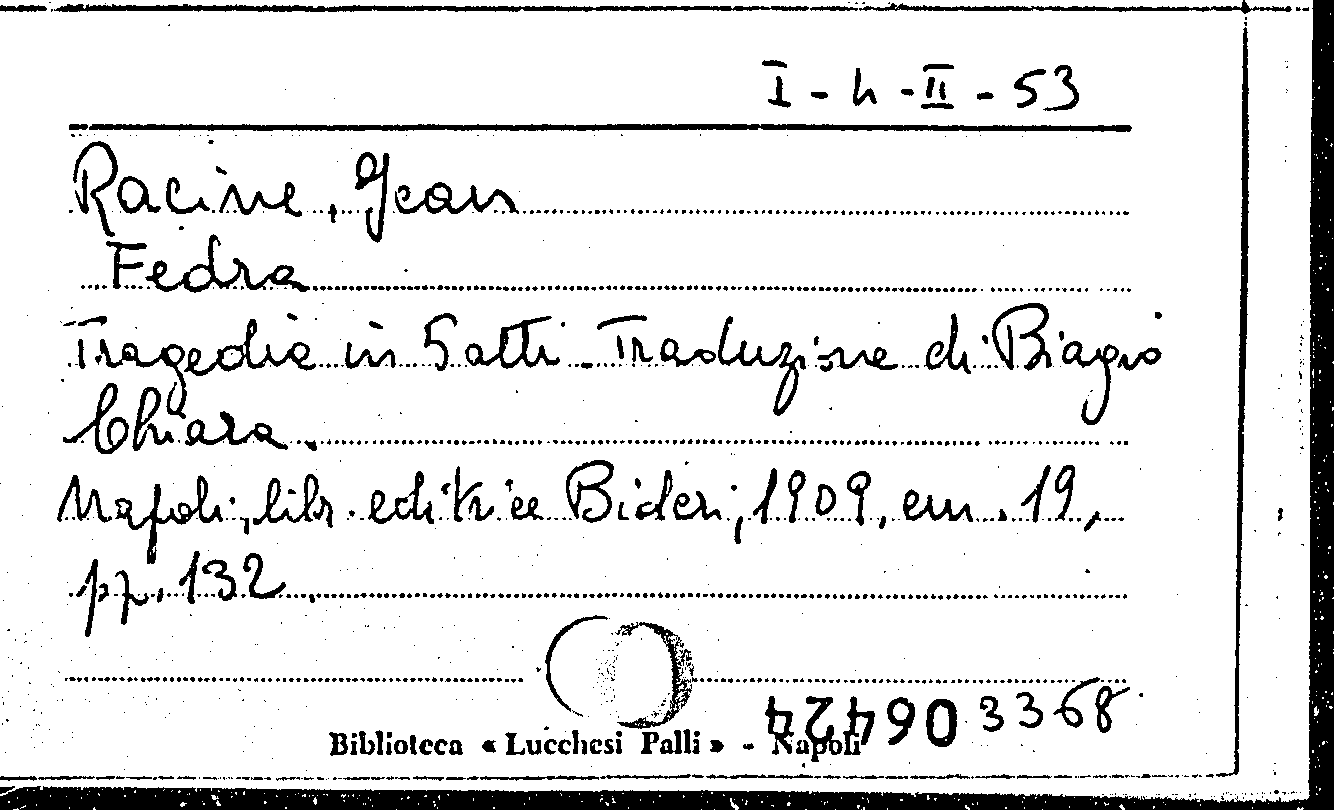 I - h - II - 53
Racine, Jean
Fedra
Tragedia in 5 atti. Traduzione di Biagio
Chiara.
Napoli, libr. editrice Bideri, 1909, cm. 19,
pp. 132.
3368
Biblioteca « Lucchesi Palli » - Napoli